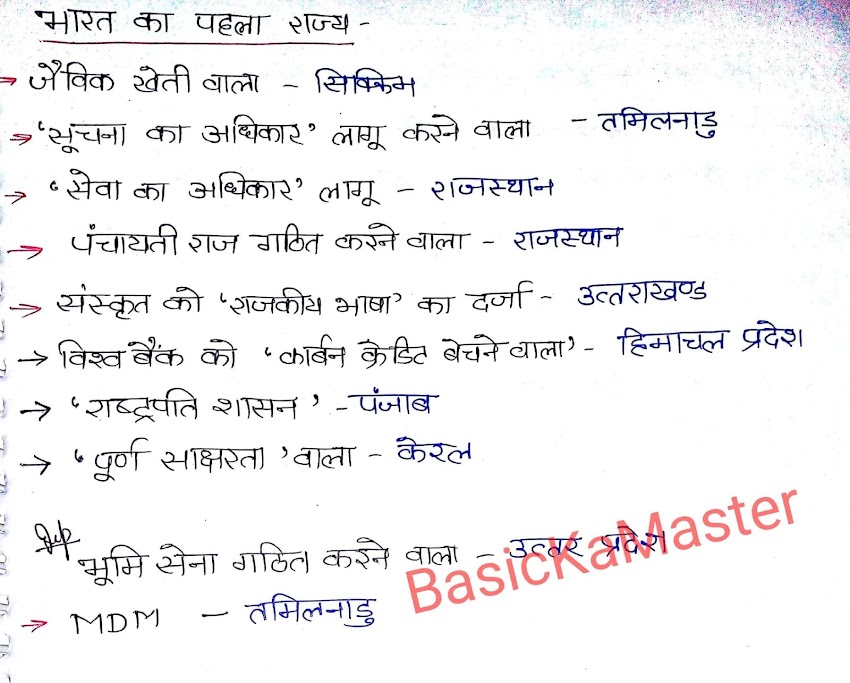 भारत का पहला राज्य -
→ जैविक खेती वाला - सिक्किम
→ 'सूचना का अधिकार' लागू करने वाला - तमिलनाडु
→ 'सेवा का अधिकार' लागू - राजस्थान
→ पंचायती राज गठित करने वाला - राजस्थान
→ संस्कृत को 'राजकीय भाषा' का दर्जा - उत्तराखण्ड
→ विश्व बैंक को 'कार्बन क्रेडिट बेचने वाला' - हिमाचल प्रदेश
→ 'राष्ट्रपति शासन' - पंजाब
→ 'पूर्ण साक्षरता' वाला - केरल
भूमि सेना गठित करने वाला - उत्तर प्रदेश
→ MDM - तमिलनाडु
BasicKaMaster